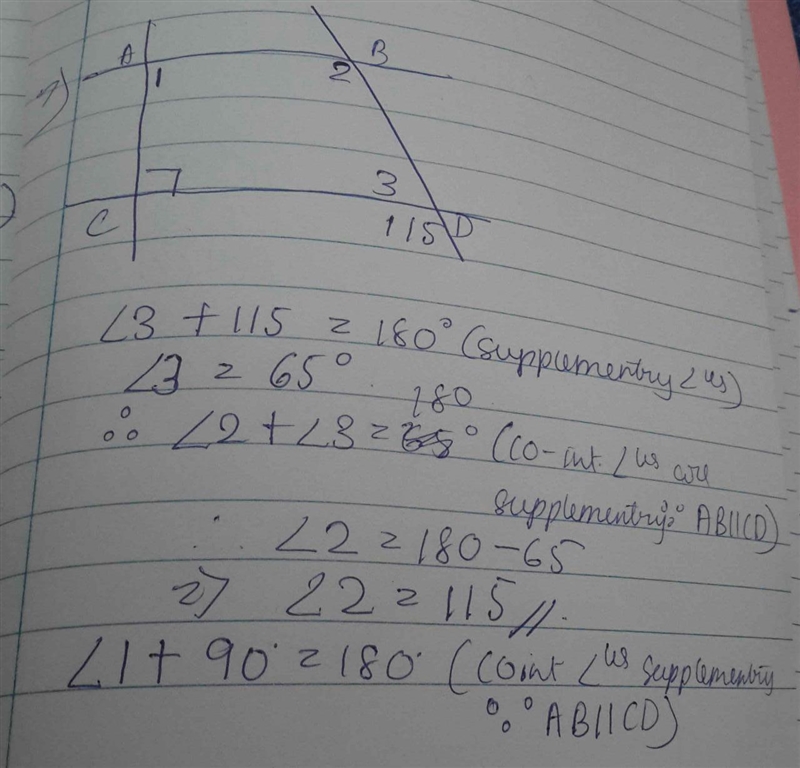 A B
1 2
3
C 115 D
∠3 + 115 = 180° (supplementry ∠us)
∠3 = 65°
180
∴ ∠2 + ∠3 = ° (co-int. ∠us are
supplementry ∵ AB||CD)
∴ ∠2 = 180 - 65
∠2 = 115 //.
∠1 + 90° = 180° (coint ∠us supplementry
∵ AB||CD)